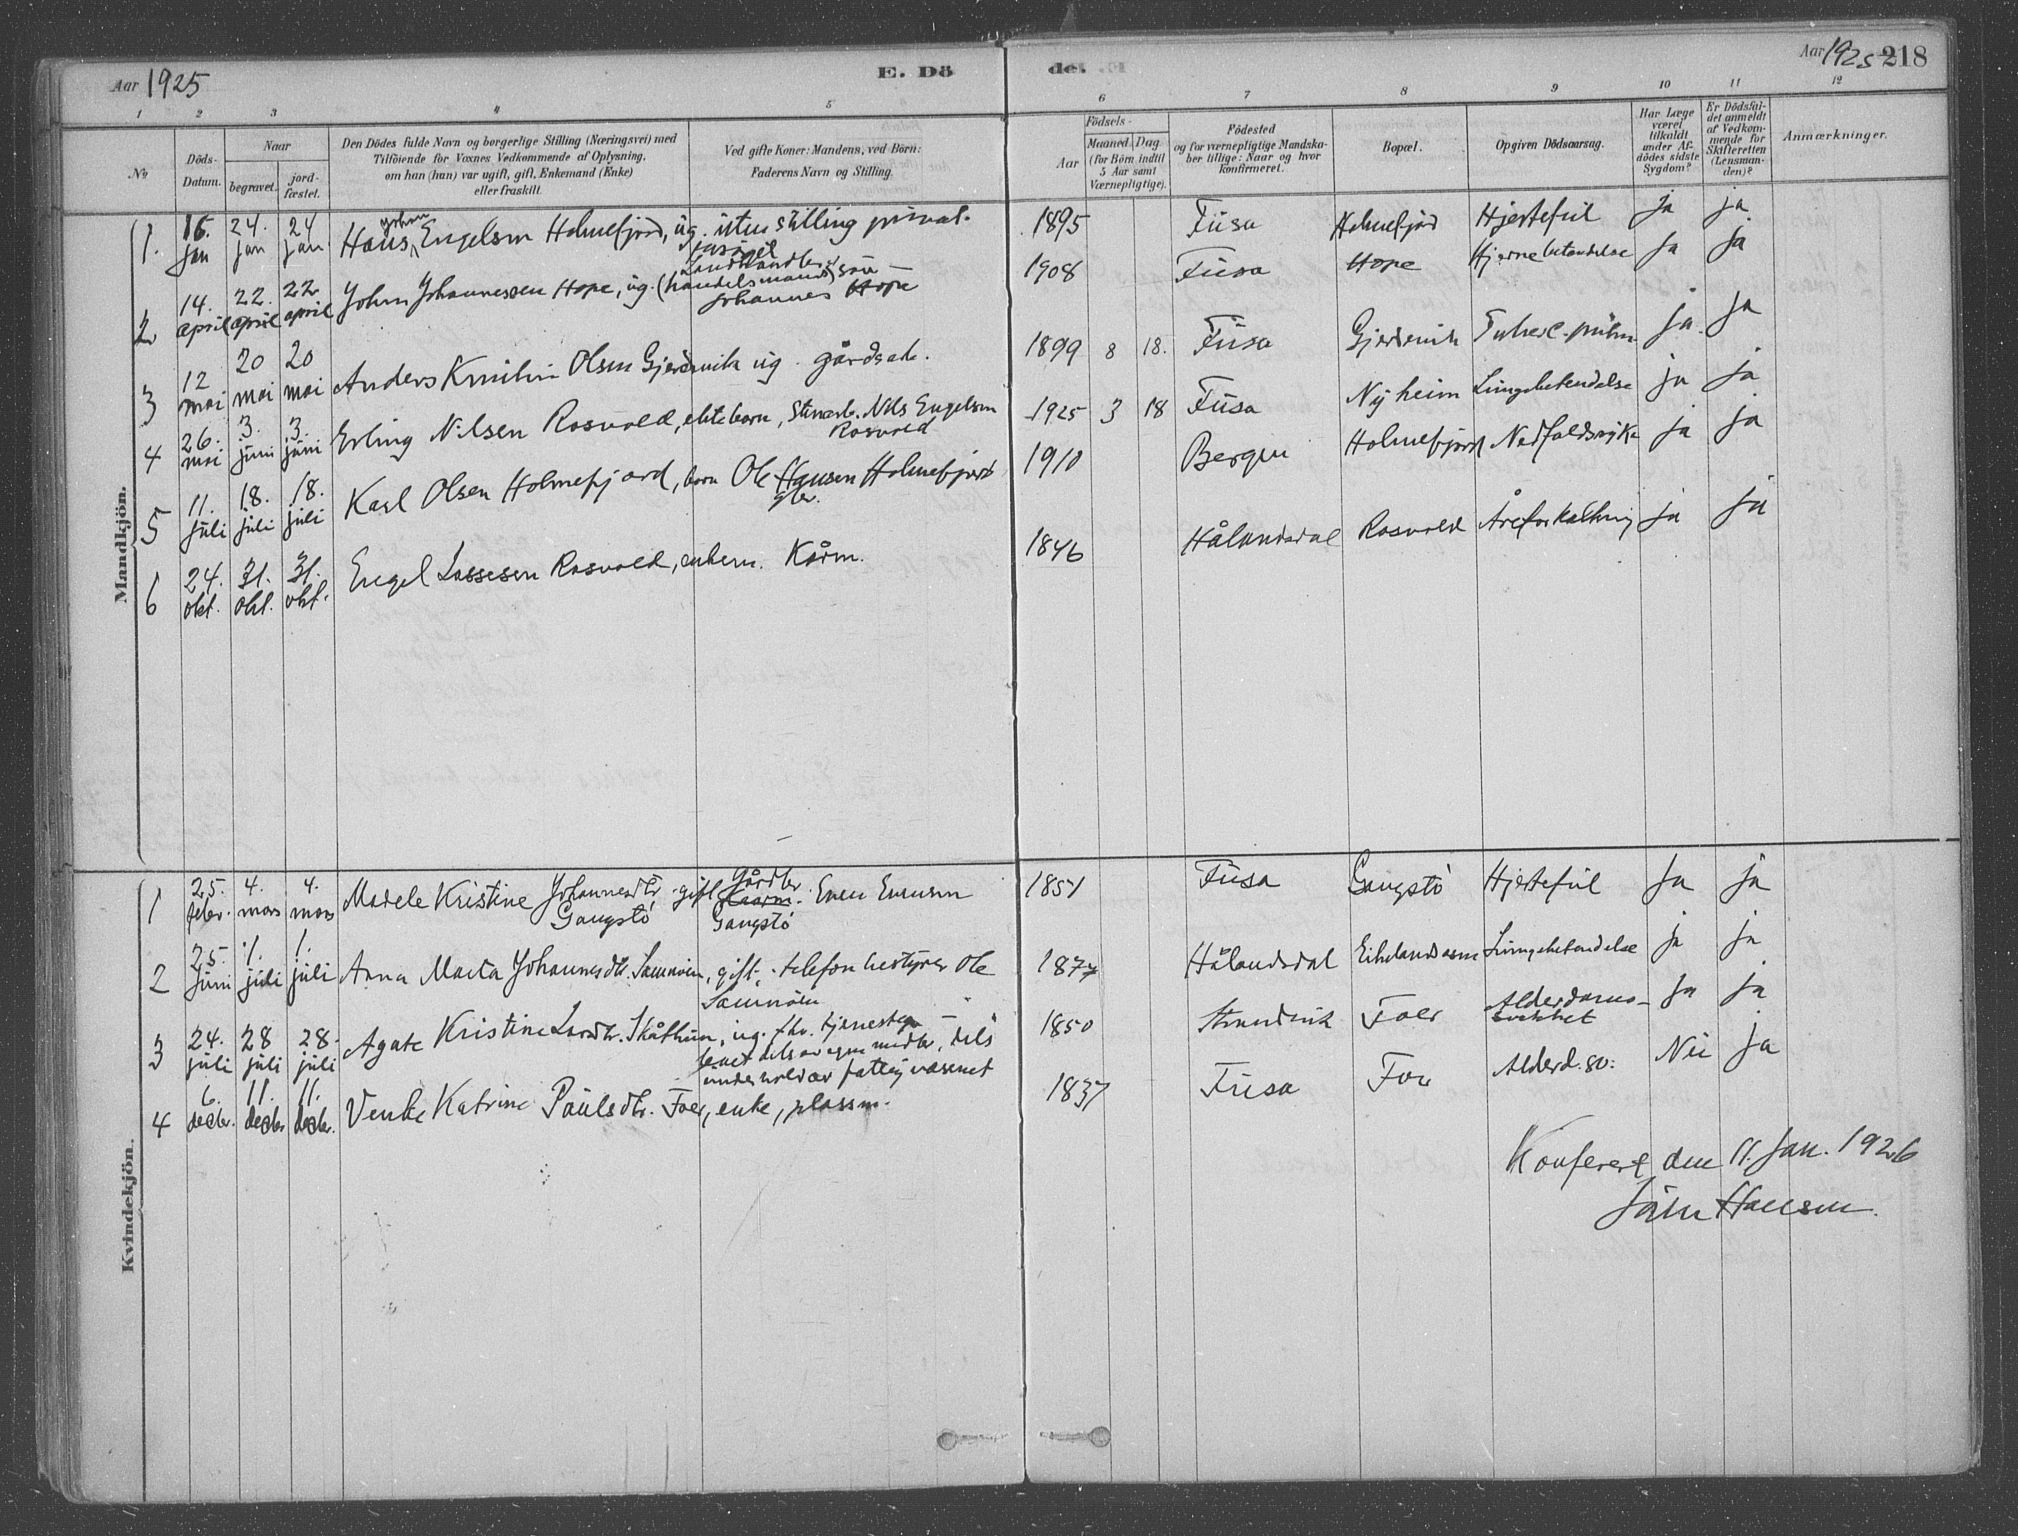 Aar 1925
E. Dö
de.
Aar 1925 218
1 2 3 4 5 6 7 8 9 10 11 12
No
Döds-Datum.
Naar
begravet.
jord-fæstet.
Den Dödes fulde Navn og borgerlige Stilling (Næringsvei) med
Tilföiende for Voxnes Vedkommende af Oplysning,
om han (hun) var ugift, gift, Enkemand (Enke)
eller fraskilt.
Ved gifte Koner: Mandens, ved Börn:
Faderens Navn og Stilling.
Födsels-
Aar
Maaned. Dag.
(for Börn indtil
5 Aar samt
Værnepligtige).
Födested
og for værnepligtige Mandska-
ber tillige: Naar og hvor
konfirmeret.
Bopæl.
Opgiven Dödsaarsag.
Har Læge
været
tilkaldt
under Af-
dödes sidste
Sygdom?
Er Dödsfal-
det anmeldt
af Vedkom-
mende for
Skifteretten
(Lensman-
den)?
Anmærkninger.
Mandkjön.
1. 16. jan 24. jan 24 jan. Hans Johan Engelsen Holmefjord, ug. uten stilling privat. 1895 Fusa Holmefjord Hjertefeil Ja ja
2 14. april 22. april 22 april John Johannessen Hope, ug. (handelsmand) søn Landhandler Johannes Hope 1908 Fusa Hope Hjernebetendelse Ja Ja
3 12 mai 20 mai 20 mai Anders Kristian Olsen Gjerdevik ug. gårdsarb. 1899 8 18. Fusa Gjerdevik Tuberc. pulm ja Ja
4 26. mai 3. juni 3. juni Erling Nilsen Rosvold, ekte barn, Nils Engelsen Rosvold 1925 3 18 Fusa Nyheim Lungebetendelse ja ja
5 11. juli 18. juli 18. juli Karl Olsen Holmefjord, barn Ole Hansen Holmefjord gbr. 1910 Bergen Holmefjord Nedfaldssyke ja ja
6 24. okt. 31. okt. 31. okt. Engel Lassesen Rosvold, enkem. Kårm. 1846 Hålandsdal Rosvold Åreforkalkning ja ja
Kvindekjön.
1 25. febr. 4. mars 4. mars Madele Kristine Johannesdtr. Gangstö gift Gårdbr. Kaarm. Even Evensen Gangstö 1851 Fusa Gangstö Hjertefeil Ja ja
2 25. juni 1. juli 1. juli Anna Marta Johannesdtr. Samnöen, gift, telefonbestyrer Ole Samnöen 1877 Hålandsdal Eikelandsosen Lungebetendelse ja ja
3 24. juli 28 juli 28. juli Agate Kristine Larsdtr. Skåthun, ug. fhv. tjenestep. levet dels av egne midler, dels underhold av fattigvæsenet 1850 Strandvik Foer Alderdoms-svakhet Ja Ja
4 6. decbr. 11. decbr 11. decbr. Venke Katrine Paulsdtr. Foer, enke, plassm. 1837 Fusa Foer Alderd. so: Nei Ja
Konferert den 11. Jan. 1926
Hansen.